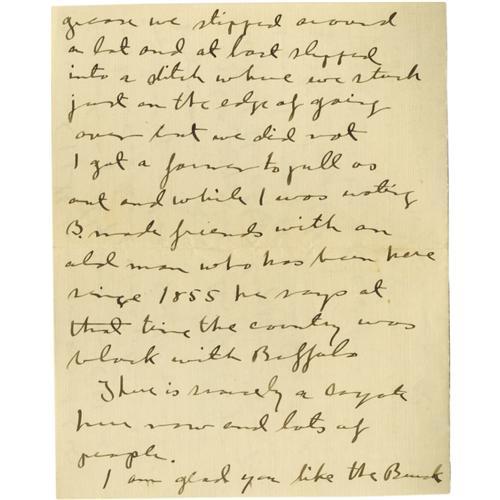 grease we slipped around
a lot and at last slipped
into a ditch where we stuck
just on the edge of going
over but we did not
I got a farmer to pull us
out and while I was waiting
B. made friends with an
old man who has been here
since 1855 he says at
that time the country was
black with Buffalo
There is scarcely a coyote
here now and lots of
people.
I am glad you like the